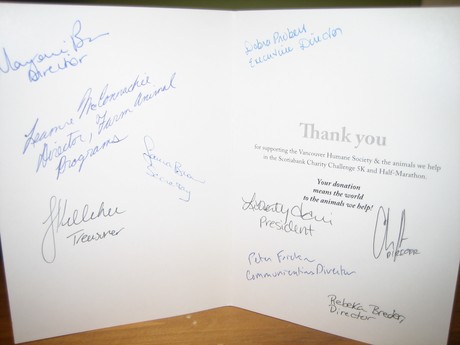 Director
Leanne McConnachie
Director, Farm Animal
Programs
Secretary
Treasurer
Debra Probert
Executive Director
Thank you
for supporting the Vancouver Humane Society & the animals we help
in the Scotiabank Charity Challenge 5K and Half-Marathon.
Your donation
means the world
to the animals we help!
Liberty
President
DIRECTOR
Peter Fricker
Communications Director
Rebeka Breder
Director